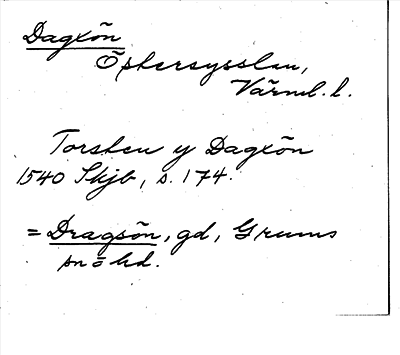 Dagxön
Östersysslen,
Värml. l.
Torsten y Dagxön
1540 Skjb, s. 174.
= Dragsön, gd, Grums
sn o hd.